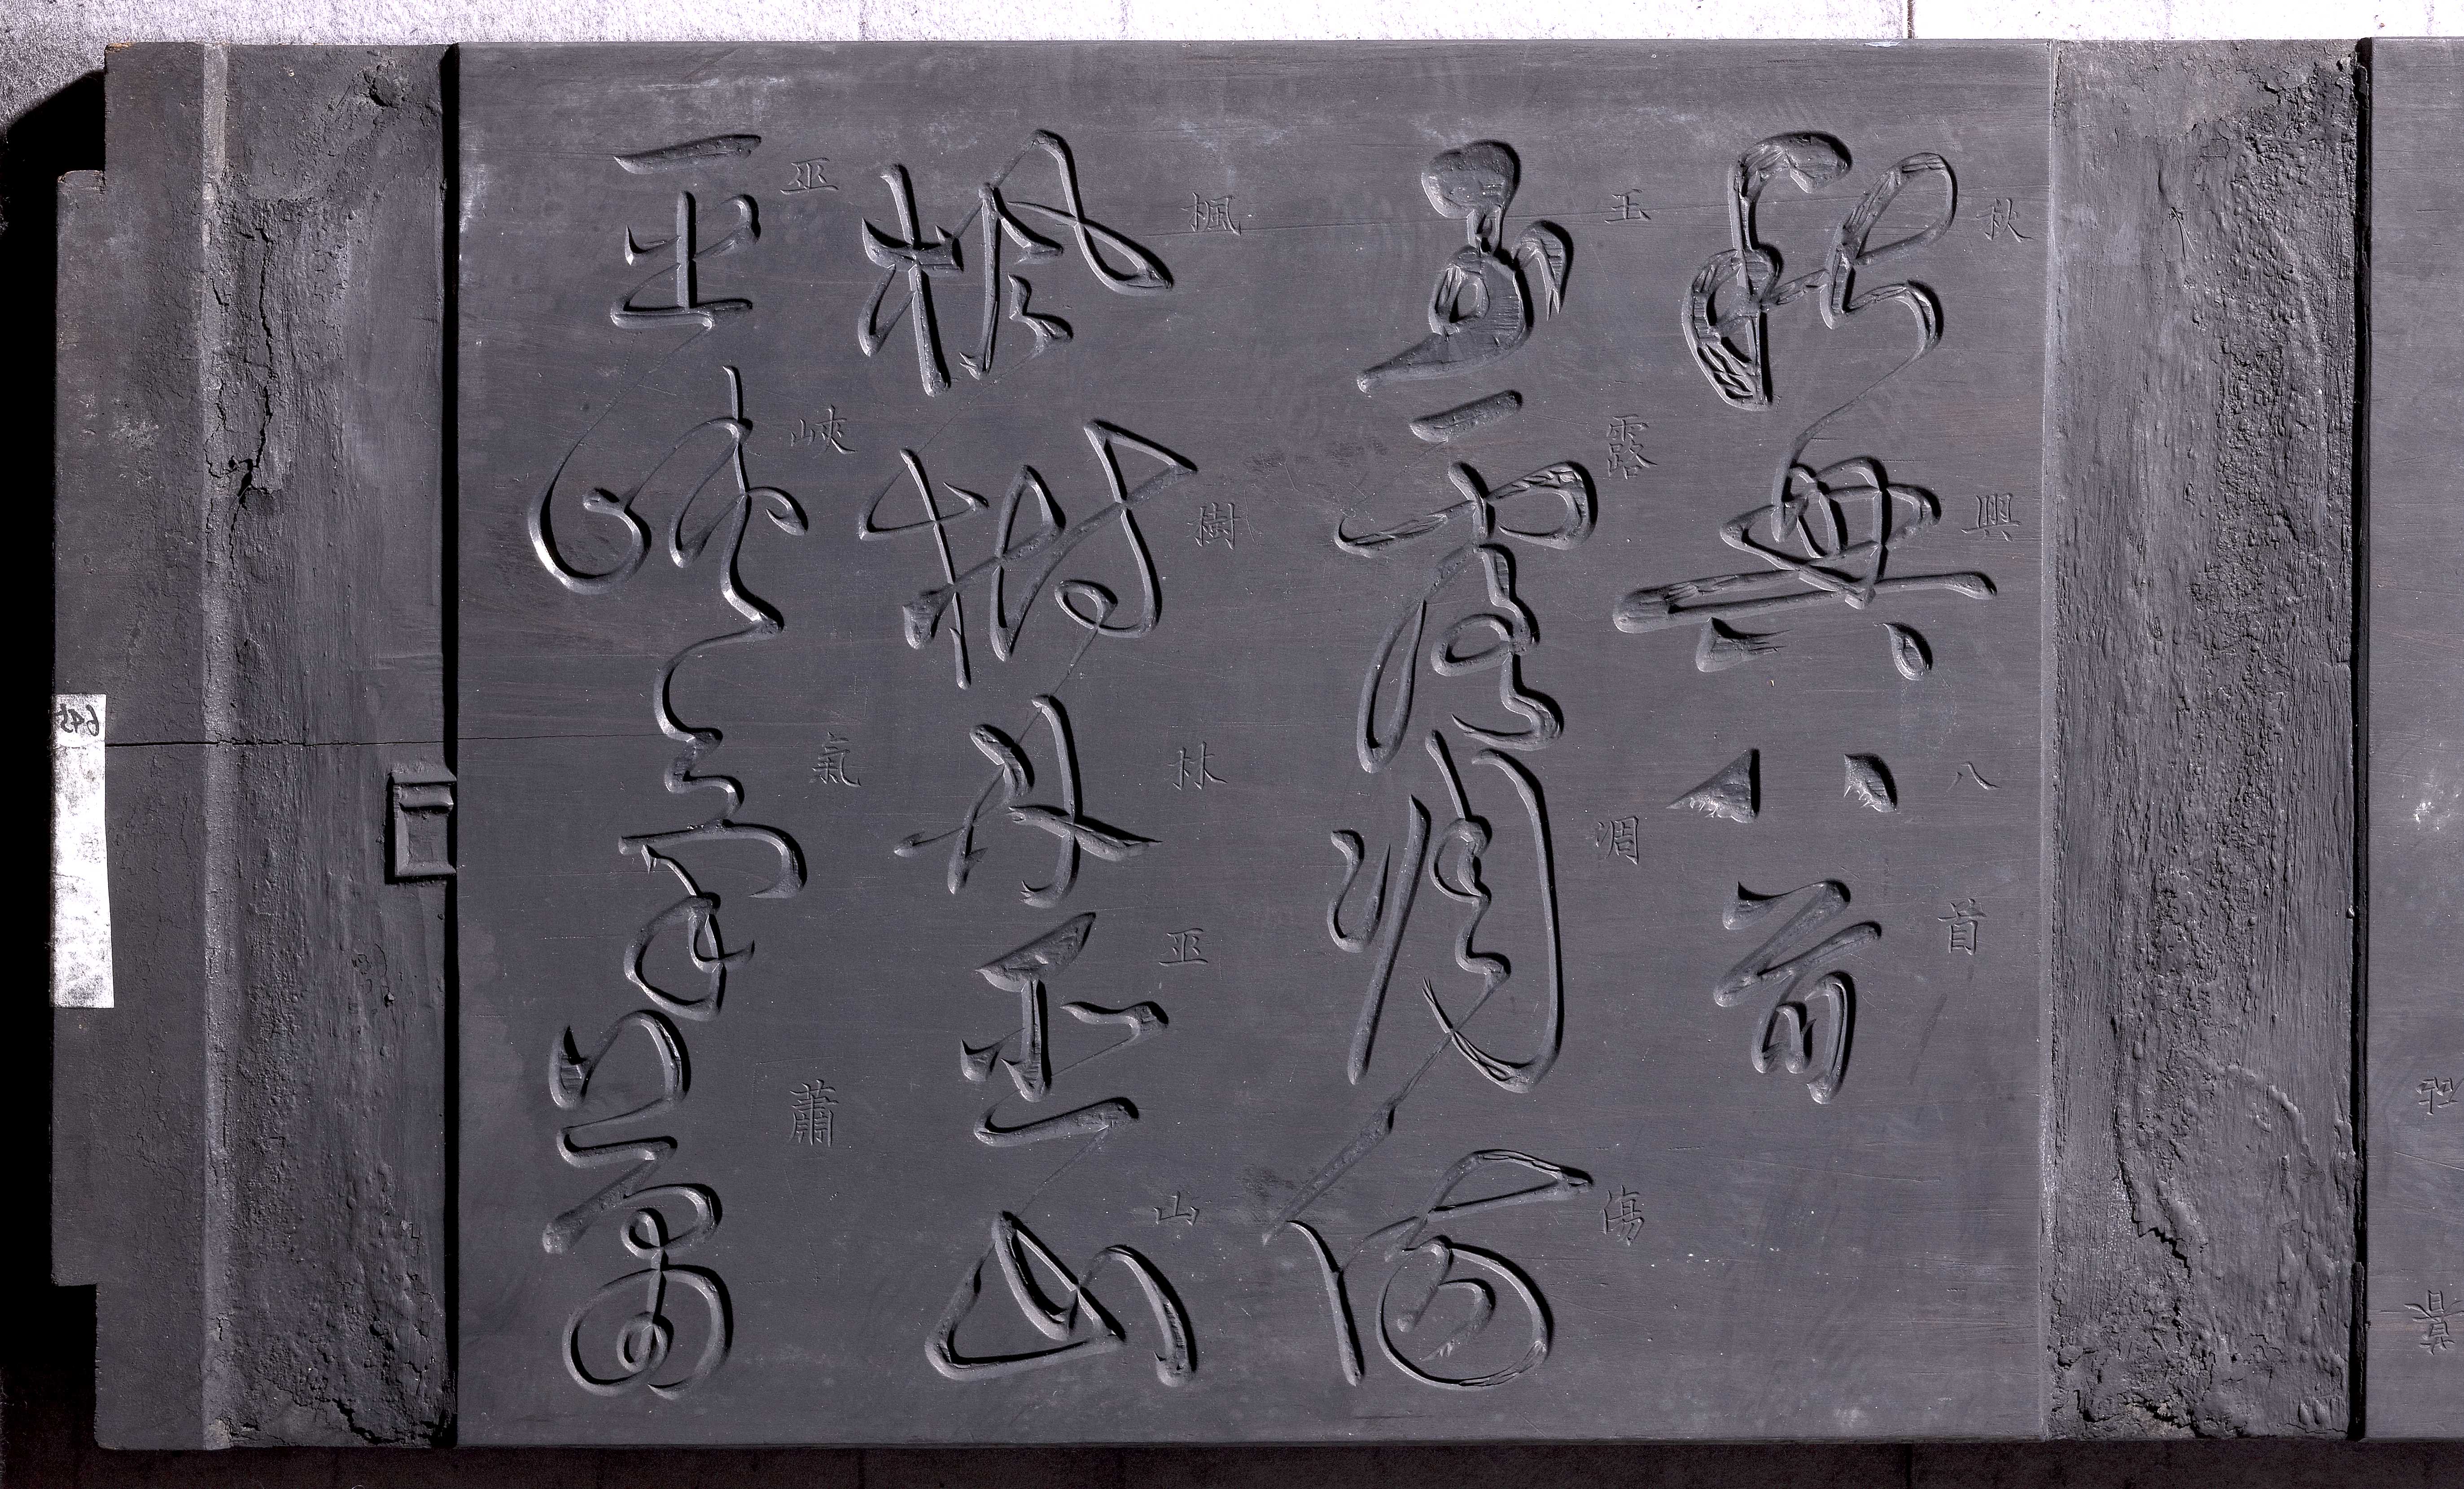 秋興八首
秋興八首
玉露凋傷
玉露凋傷
楓樹林巫山
楓樹林巫山
巫峽氣蕭
巫峽氣蕭